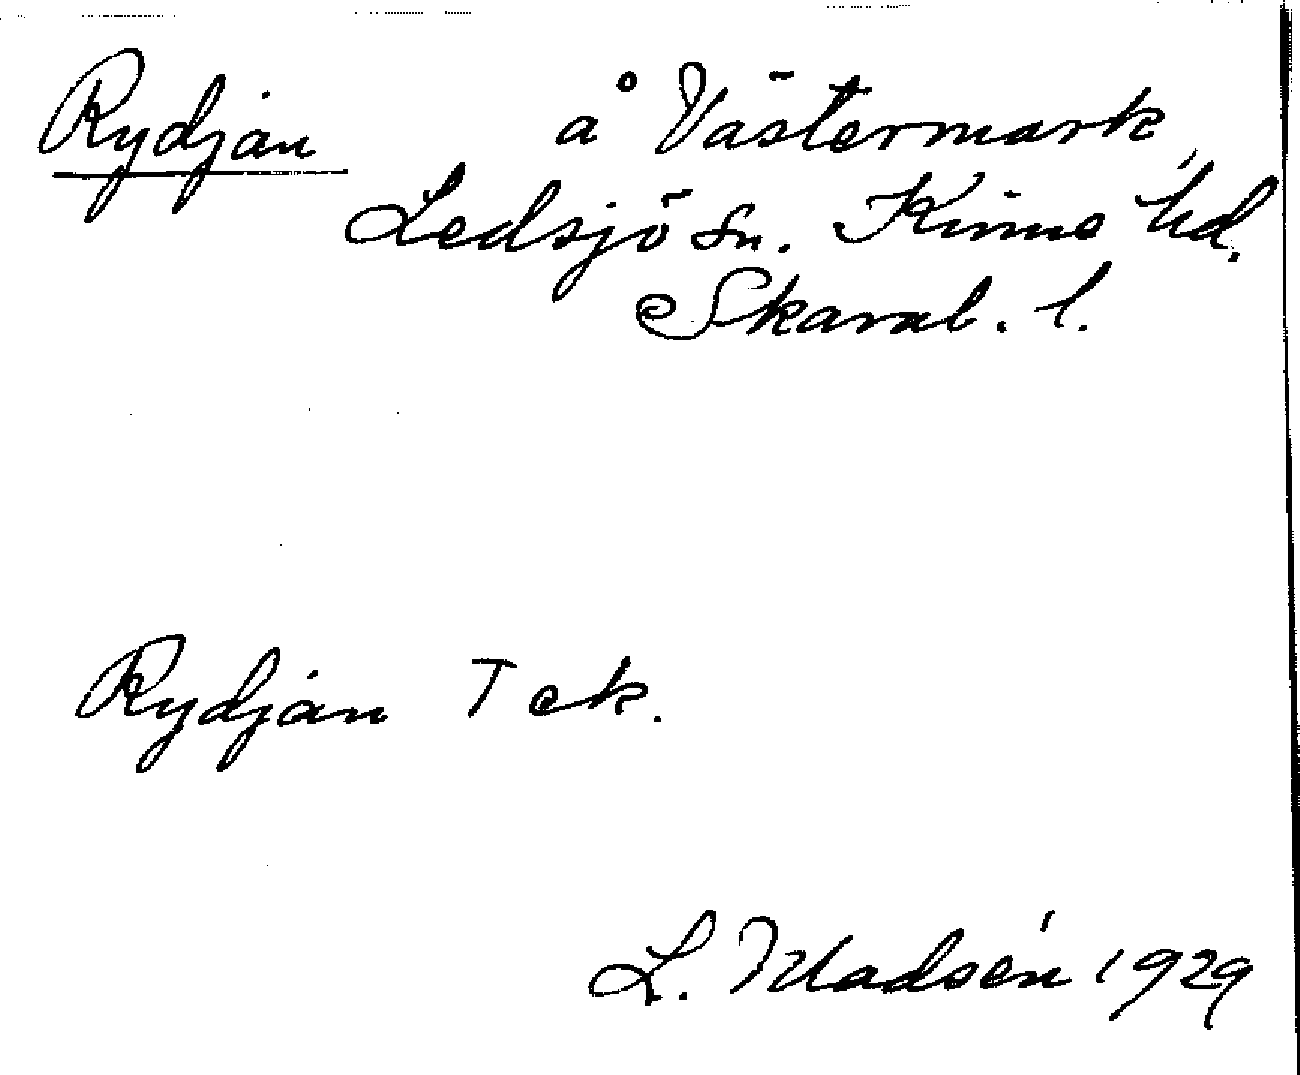 Rydján å Västermark,
Ledsjö sn. Kinne hd.
Skarab. l.
Rydján T ek.
L. Madsén 1929